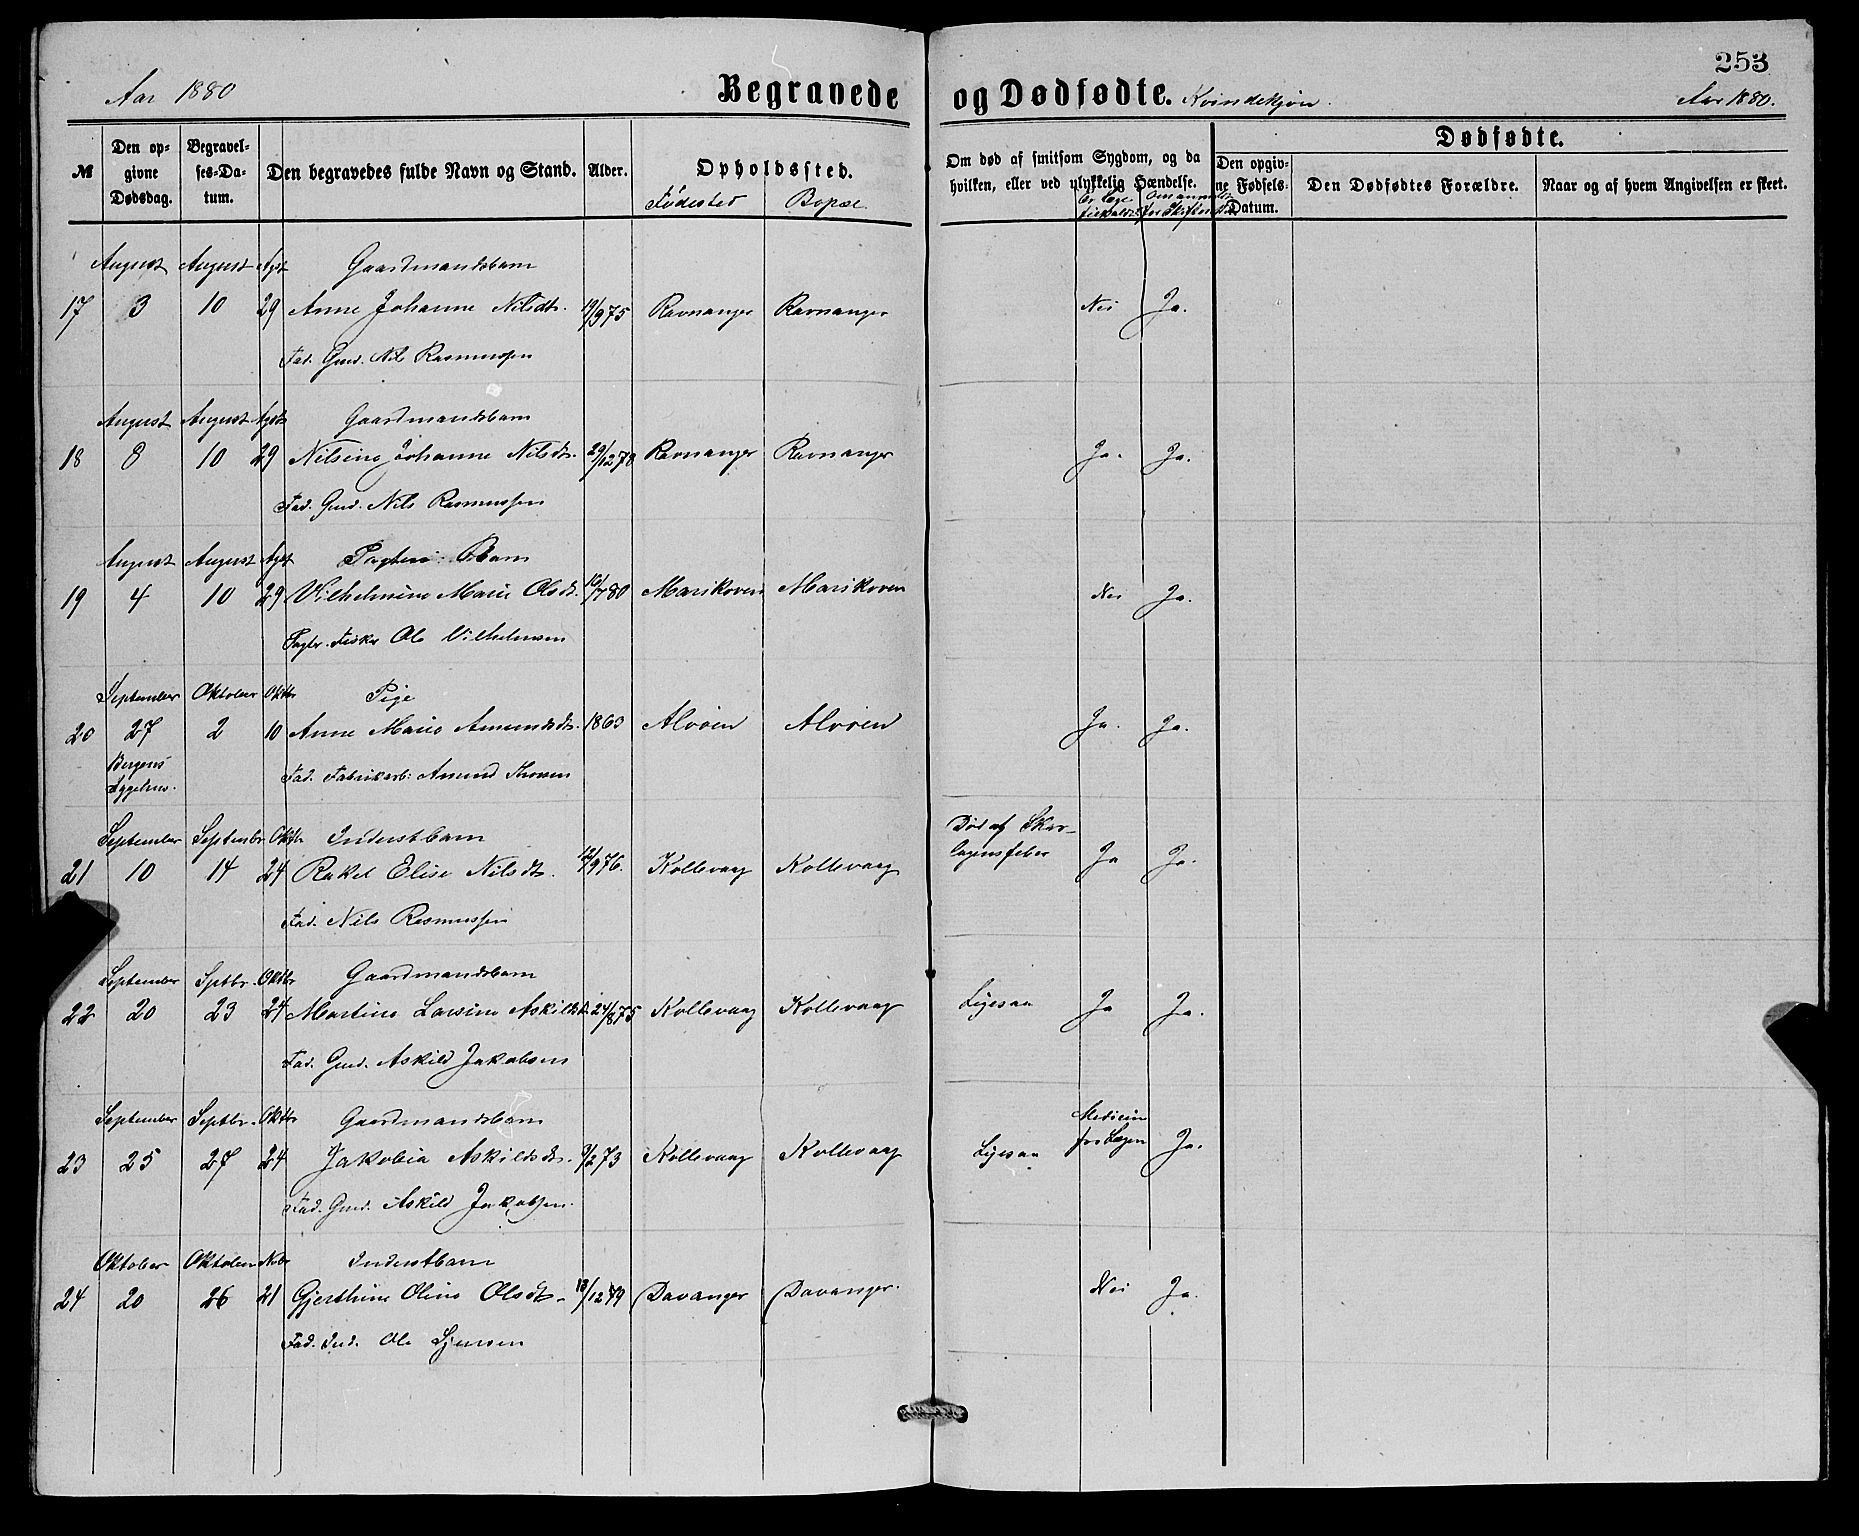 253
Aar 1880
Begravede og Dødfødte. Kvindekjøn.
Aar 1880.
№
Den opgivne Dødsdag.
Begravelses-Datum.
Den begravedes fulde Navn og Stand.
Alder.
Opholdssted.
Fødested Bopæl
Om død af smitsom Sygdom, og da hvilken, eller ved ulykkelig Hændelse.
Er Læge
Om anmeldt for Skifteret
Dødfødte.
Den opgivne Fødsels-Datum.
Den Dødfødtes Forældre.
Naar og af hvem Angivelsen er skeet.
August August Agst Gaardmandsbarn
17 3 10 29 Anne Johanne Nilsdtr. 19/9 75 Ravnanger Ravnanger Nei Ja.
Fad. Gmd. Nils Rasmussen
August August Agst Gaardmandsbarn
18 8 10 29 Nilsine Johanne Nilsdtr. 29/12 78 Ravnanger Ravnanger Ja. Ja.
Fad. Gmd. Nils Rasmussen
August August Agst Barn
19 4 10 29 Vilhelmine Marie Olsdt. 10/7 80 Marikoven Marikoven Nei Ja.
Fisker Ole Vilhelmsen
September Oktober Oktbr Pige
20 27 2 10 Anne Marie Amundsdtr. 1863 Alvøen Alvøen Ja. Ja.
Bergens Sygehus.
Fad. Fabrikarb: Amund
September Septembr Oktbr Inderstbarn
Død af Skarlagensfeber
21 10 14 24 Rakel Elise Nilsdtr. 12/9 76. Kollevaag Kollevaag Ja Ja.
Fad. Nils Rasmussen
September Sptbr. Oktbr Gaardmandsbarn
22 20 23 24 Martine Larsine Askildsd. 24/8 75 Kollevaag Kollevaag Ligesaa Ja Ja.
Fad. Gmd. Askild Jakobsen
September Septbr. Oktbr Gaardmandsbarn
Medicin fra Lægen
23 25 27 24 Jakobia Askildsdt. 9/2 73 Kollevaag Kollevaag Ligesaa Ja.
Fad. Gmd. Askild Jakobsen.
Oktober Oktober Nvbr Inderstbarn
24 20 26 21 Gjerthine Oline Olsdtr. 18/12 79 Davanger Davanger. Nei Ja.
Fad. Ind. Ole